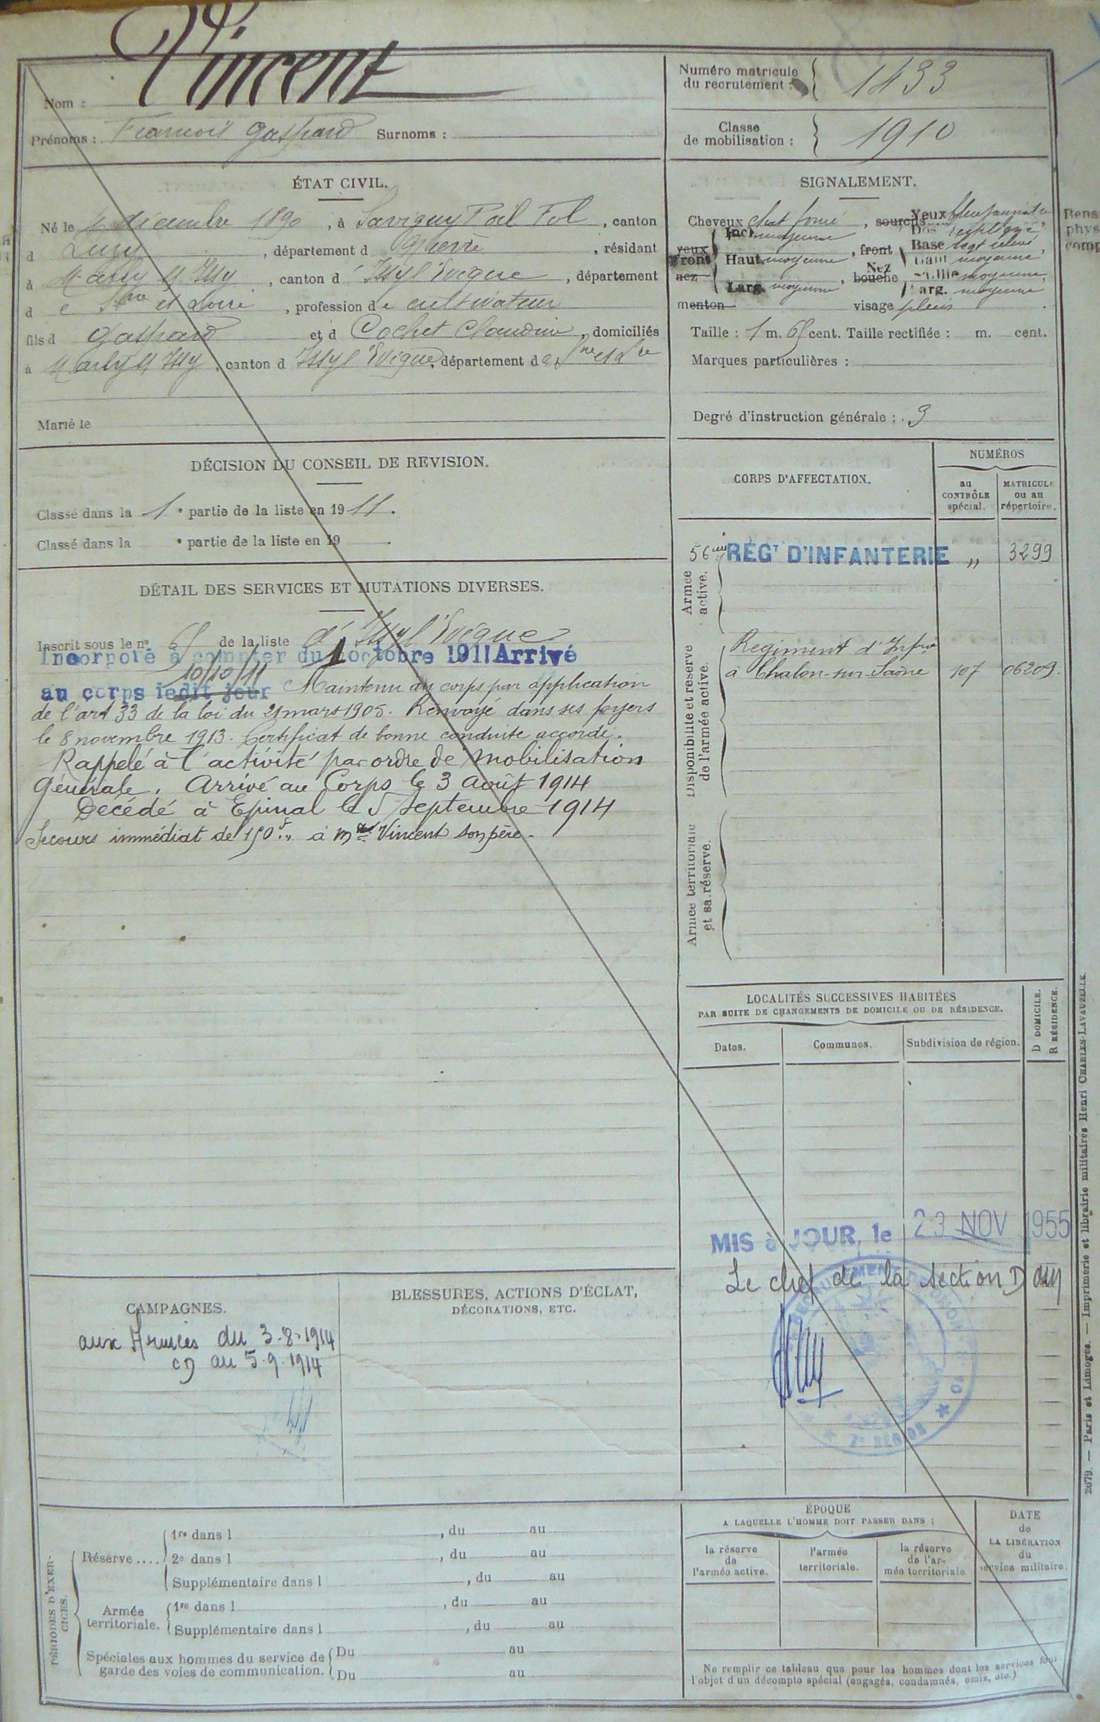 Vincent
Nom :
Prénoms : François Gaspard Surnoms :
Numéro matricule du recrutement : 1433
Classe de mobilisation : 1910
ÉTAT CIVIL.
Né le 4 décembre 1890, à Savigny Poil Fol, canton
d Luzy, département d Nièvre, résidant
à Marly s/ Issy, canton d' Issy l'Evêque, département
d e Sne et Loire, profession de cultivateur
fils d Gaspard et d Cochet Claudine, domiciliés
à Marly s/ Issy, canton d Issy l'Evêque, département d e Sne et Lre
Marié le
SIGNALEMENT.
Cheveux chat foncé, sourcils
Yeux
yeux Front Incl. moyenne, front
Haut. moyenne
nez Larg. moyenne, bouche
Nez Dos rectiligne
Base
Haut. moyenne
Saillie moyenne
Larg. moyenne
menton visage plein
Taille : 1 m. cent. Taille rectifiée : m. cent.
Marques particulières :
Degré d'instruction générale : 3
DÉCISION DU CONSEIL DE REVISION.
Classé dans la 1 e partie de la liste en 1911.
Classé dans la e partie de la liste en 19
CORPS D'AFFECTATION.
NUMÉROS
au CONTRÔLE spécial.
MATRICULE ou au répertoire.
Armée active.
56ème RÉGT D'INFANTERIE " 3299
Disponibilité et réserve de l'armée active.
Régiment d'Infrie
à Chalon-sur-Saône 107 06209.
Armée territoriale et sa réserve.
DÉTAIL DES SERVICES ET MUTATIONS DIVERSES.
Inscrit sous le n° de la liste d' Issy l'Evêque
Incorporé à compter du 1 octobre 1911 Arrivé
10/10/11
au corps ledit jour Maintenu au corps par application
de l'art 33 de la loi du 21 mars 1905. Renvoyé dans ses foyers
le 8 novembre 1913. Certificat de bonne conduite accordé.
Rappelé à l'activité par ordre de mobilisation
Générale. Arrivé au Corps le 3 août 1914
Décédé à Epinal le 5 Septembre 1914
Secours immédiat de 150f" à Mr Vincent son père.
LOCALITÉS SUCCESSIVES HABITÉES
PAR SUITE DE CHANGEMENTS DE DOMICILE OU DE RÉSIDENCE.
Dates.
Communes.
Subdivision de région.
D DOMICILE.
R RÉSIDENCE.
MIS à JOUR, le 23 NOV 1955
Le chef de la section D
CAMPAGNES.
aux Armées du 3-8-1914
CD au 5.9.1914
BLESSURES, ACTIONS D'ÉCLAT,
DÉCORATIONS, ETC.
PÉRIODES D'EXERCICES.
Réserve....
1re dans l , du au
2e dans l , du au
Supplémentaire dans l , du au
Armée territoriale.
1re dans l , du au
Supplémentaire dans l , du au
Spéciales aux hommes du service de garde des voies de communication.
Du au
Du au
ÉPOQUE
A LAQUELLE L'HOMME DOIT PASSER DANS :
la réserve de l'armée active.
l'armée territoriale.
la réserve de l'armée territoriale
DATE de LA LIBÉRATION du service militaire.
Ne remplir ce tableau que pour les hommes dont les services font
l'objet d'un décompte spécial (engagés, condamnés, omis, etc.)
2679. — Paris et Limoges. — Imprimerie et librairie militaires Henri CHARLES-LAVAUZELLE.